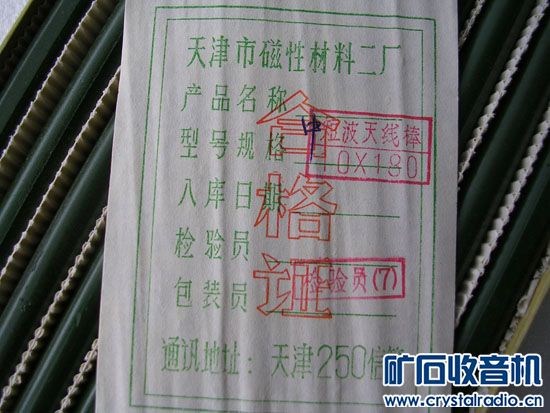 天津市磁性材料二厂
产品名称
中短波天线棒
型号规格
10X180
入库日期
检验员
检验员(7)
包装员
合格证
通讯地址: 天津250信箱
矿石收音机
www.crystalradio.cn